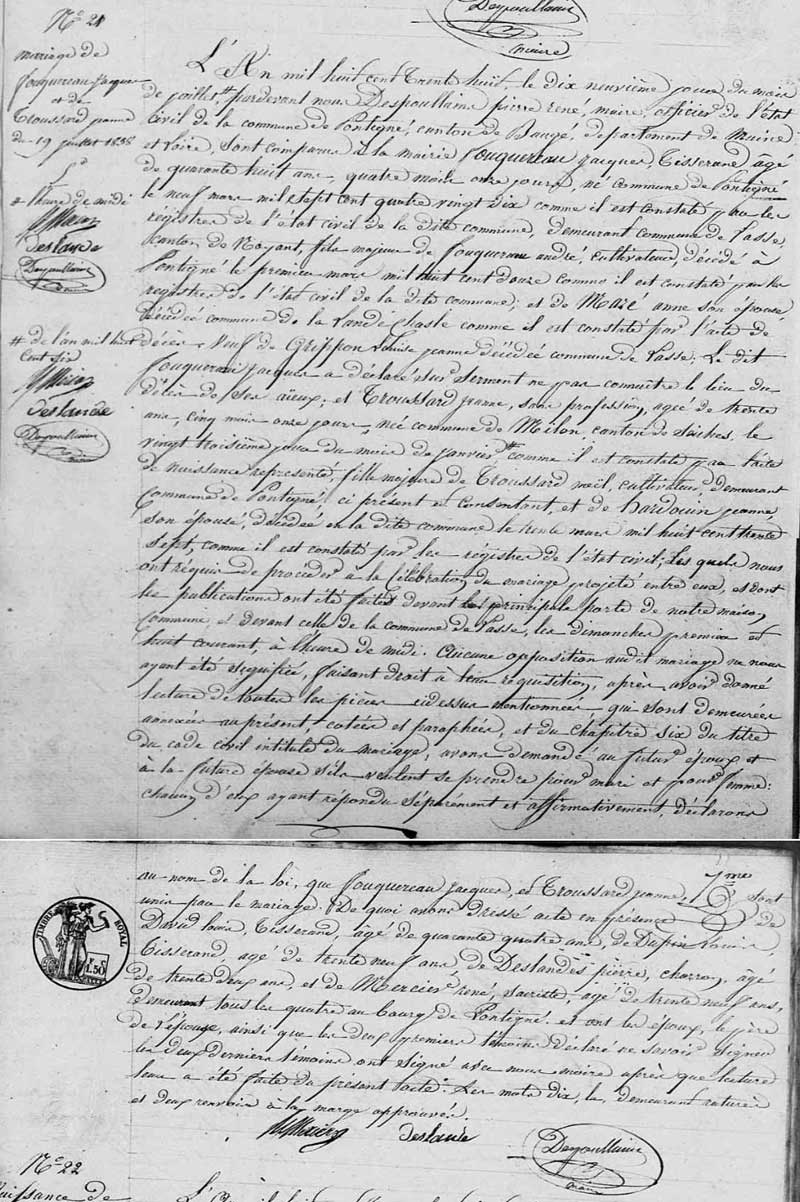 Despoullains
maire
N.° 21
mariage de
fouquereau Jacques
et de
Troussard jeanne
du 19 juillet 1838
# l'heure de midi
Deslande
Despoullains
maire
# de l'an mil huit
Cent Six
Deslande
Despoullains
maire
L'An mil huit Cent Trente huit, le dix neuvième jour du mois
de juillet, # pardevant nous Despoullains pierre rené, maire, officier de l'état
civil de la commune de Pontigné, canton de Baugé, département de Maine
et Loire, sont comparus à la mairie fouquereau Jacques, Tisserand, agé
de quarante huit ans, quatre mois onze jours, né commune de Pontigné
le neuf mars mil sept cent quatre vingt dix comme il est constaté par les
registres de l'état civil de la dite commune, demeurant commune de Lasse,
Canton de Noyant, fils majeur de fouquereau andré, cultivateur, décédé à
Pontigné le premier mars mil huit cent douze comme il est constaté par les
registres de l'état civil de la dite commune; et de Mazé anne son épouse
décédée commune de la Lande Chasle comme il est constaté par l'acte de
décès, Veuf de Grippon Louise jeanne décédée commune de Lasse; Le dit
fouquereau Jacques a déclaré sur serment ne pas connaître le lieu du
décès de ses aïeux; et Troussard jeanne, sans profession, agée de trente
ans, cinq mois onze jours, née commune de Melon, canton de Seiches, le
vingt troisième jour du mois de janvier # comme il est constaté par l'acte
de naissance représenté, fille majeure de Troussard noël, cultivateur, demeurant
commune de Pontigné, ci présent et consentant, et de hardouin jeanne,
son épouse, décédée en la dite commune le trente mars mil huit cent trente
sept, comme il est constaté par les régistres de l'état civil; Les quels nous
ont réquis de procéder à la Célébration du mariage projeté entre eux, et dont
les publications ont été faites devant la principale porte de notre maison
commune, et devant celle de la commune de Lasse, les dimanches premier et
huit courant, à l'heure de midi. Aucune opposition au dit mariage ne nous
ayant été signifiée, faisant droit à leur réquisition, après avoir donné
lecture de toutes les pièces cidessus mentionnées, qui sont demeurées
annexées au présent, cotées et paraphées, et du chapitre six du titre
du code civil intitulé du mariage, avons demandé au futur époux et
à la future épouse s'ils veulent se prendre pour mari et pour femme:
chacun d'eux ayant répondu séparément et affirmativement, déclarons
au nom de la loi, que fouquereau Jacques, et Troussard jeanne, sont
unis par le mariage. De quoi avons dressé acte en présence de
David louis, Tisserand, âgé de quarante quatre ans, de Dupin Louis,
Tisserand, agé de trente neuf ans, de Deslandes pierre, charron, agé
de trente deux ans, et de Mercier rené, sacriste, agé de trente neuf ans,
demeurant tous les quatre au bourg de Pontigné. et ont les époux, le père
de l'épouse, ainsi que les deux premiers témoins déclaré ne savoir signer
les deux derniers témoins ont signé avec nous maire après que lecture
leur a été faite du présent acte. Les mots dix, les, demeurant raturés
et deux renvois à la marge approuvés.
TIMBRE ROYAL
1.50
Deslande
Despoullains
maire
N.° 22
naissance de